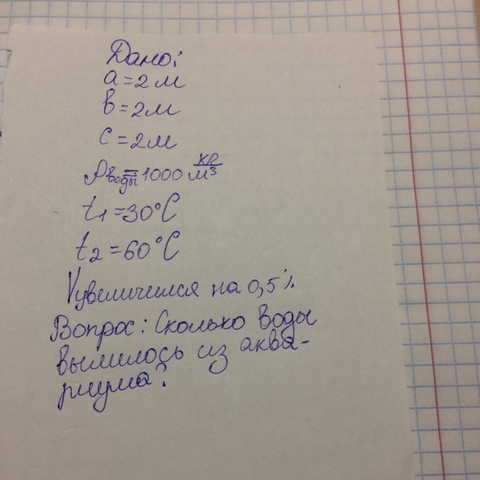 Дано:
a = 2 м
в = 2 м
c = 2 м
ρ воды = 1000 кг/м³
t1 = 30°C
t2 = 60°C
V увеличился на 0,5%.
Вопрос: Сколько воды
вылилось из аква-
риума?